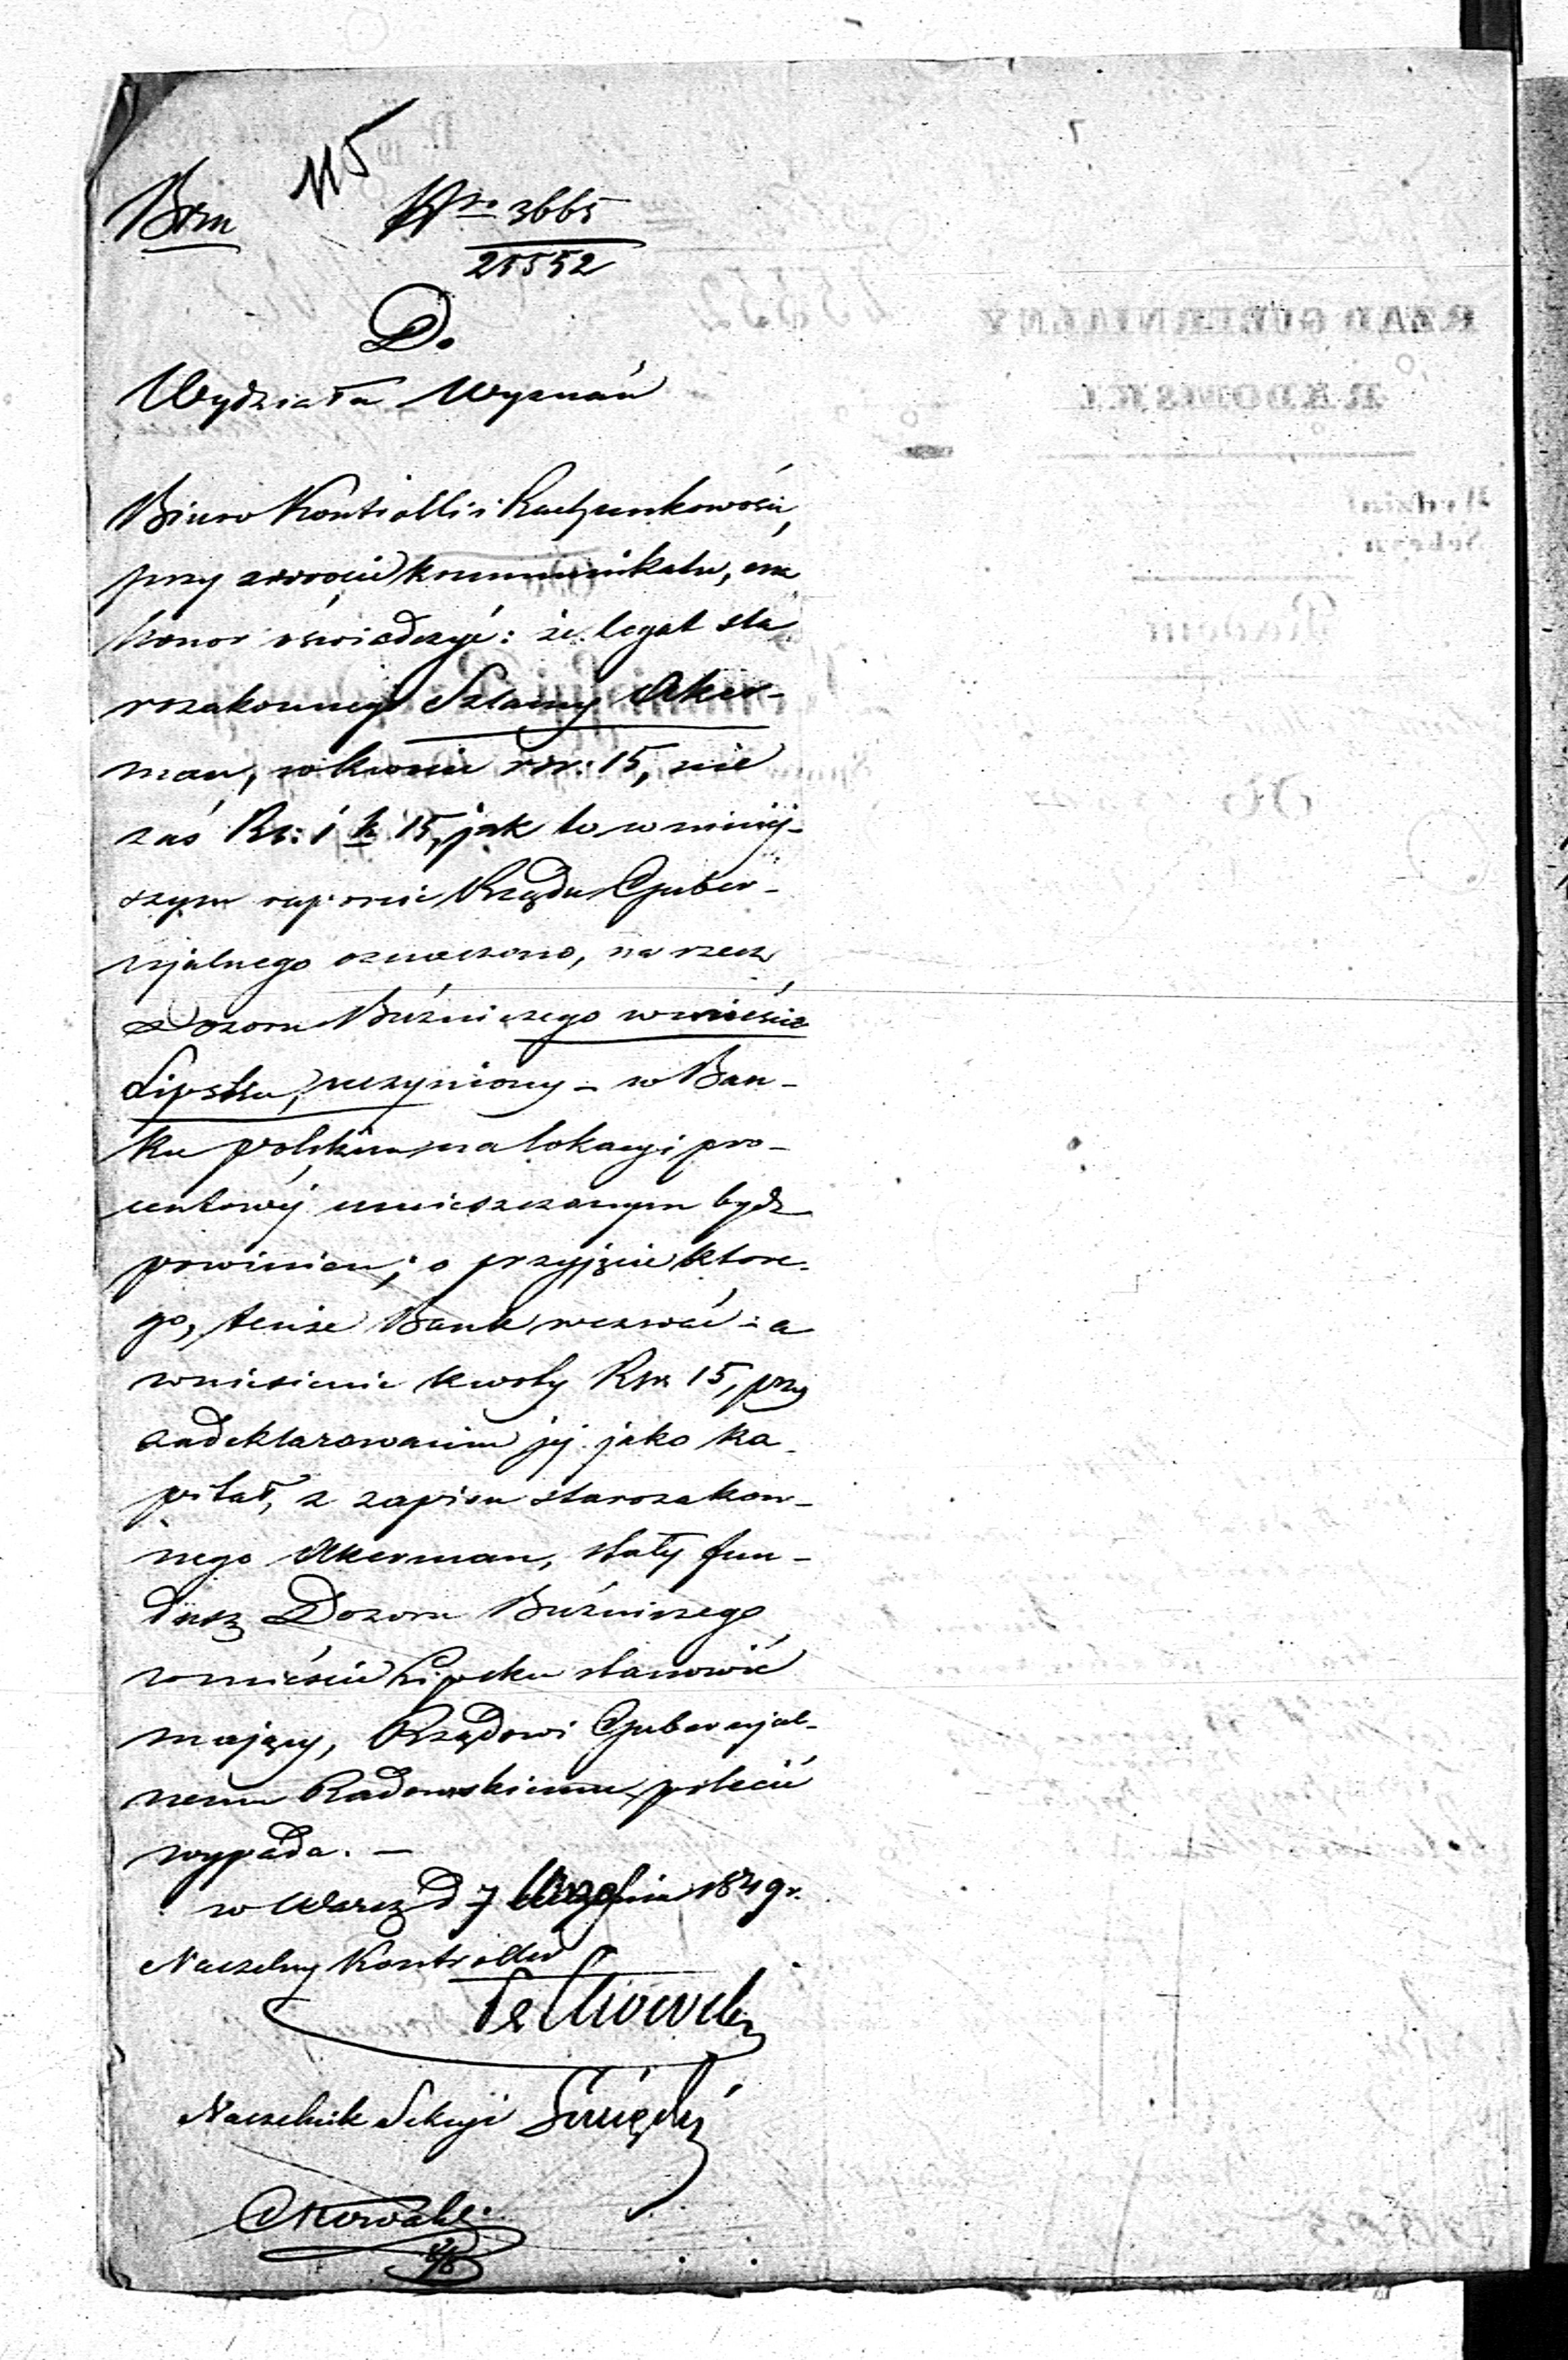 115
Bem Nro 3665
25552
D.
Wydziału Wyznań
Biuro Kontrolli i Rachunkowości,
przy zwrocie kommunikatu, ma
honor oświadczyć: że legat sta
rozakonnego Szlamy Aker-
man, w kwocie rsr: 15, nie
zaś Rs: 1 k 15, jak to w niniej-
szym raporcie Rządu Guber-
njalnego oznaczono, na rzecz
Dozoru Bużniczego w mieście
Lipsku, uczyniony – w Ban-
ku polskim na lokacyi pro-
centowéj umieszczonym bydź
powinien; o przyjęcie które-
go, tenże Bank wezwać – a
wniesienie kwoty Rsr 15, przy
zadeklarowaniu jéj jako ka-
pitał, z zapisu starozakon-
nego Akerman, stały fun-
dusz Dozoru Bużniczego
w mieście Lipsku stanowić
mający, Rządowi Gubernjal-
nemu Radomskiemu polecić
wypada. –
w Warsz d 7 Września 1849 r.
Naczelny Kontroller
Naczelnik Sekcyi
RZĄD GUBERNIALNY
RADOMSKI
Wydział
Sekcya
Radom
25552
Do